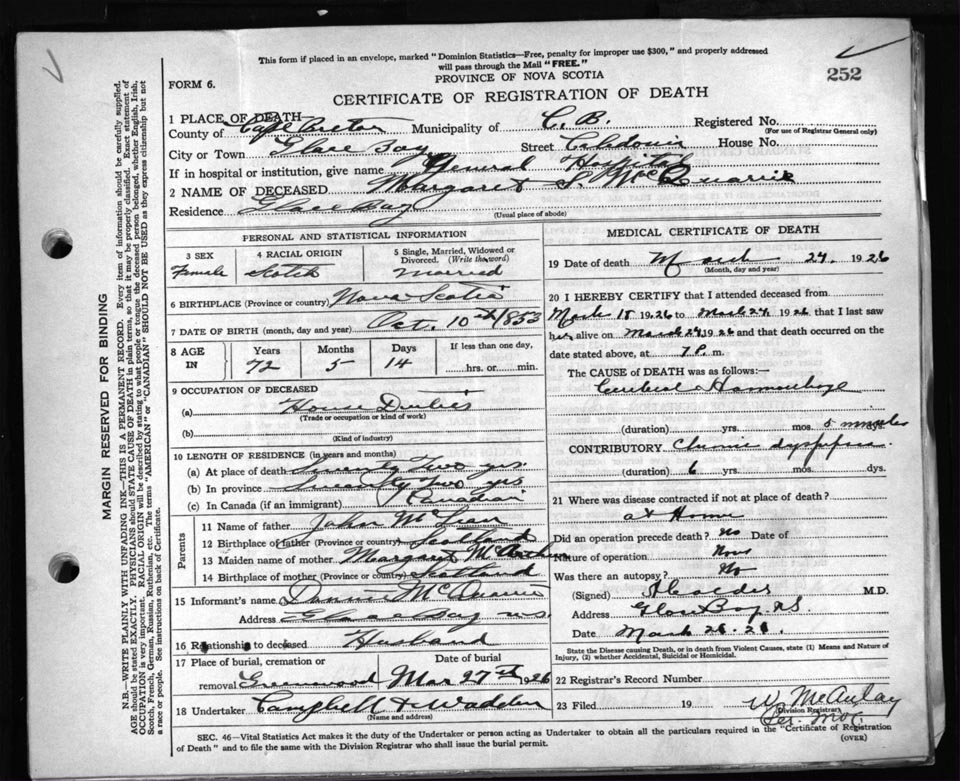 This form if placed in an envelope, marked "Dominion Statistics—Free, penalty for improper use $300," and properly addressed
will pass through the Mail "FREE."
252
FORM 6.
PROVINCE OF NOVA SCOTIA
CERTIFICATE OF REGISTRATION OF DEATH
1 PLACE OF DEATH—
County of Cape Breton Municipality of C.B. Registered No.
(For use of Registrar General only)
City or Town Glace Bay Street Caledonia House No.
If in hospital or institution, give name General Hospital
2 NAME OF DECEASED Margaret McQuarrie
Residence Glace Bay
(Usual place of abode)
PERSONAL AND STATISTICAL INFORMATION
3 SEX 4 RACIAL ORIGIN 5 Single, Married, Widowed or
Divorced. (Write the word)
Female Scotch Married
6 BIRTHPLACE (Province or country) Nova Scotia
7 DATE OF BIRTH (month, day and year) Oct. 10th 1853
8 AGE IN Years Months Days If less than one day,
72 5 14 hrs. or min.
9 OCCUPATION OF DECEASED
(a) House Duties
(Trade or occupation or kind of work)
(b)
(Kind of industry)
10 LENGTH OF RESIDENCE (in years and months)
(a) At place of death Twenty two yrs.
(b) In province Seventy two yrs
(c) In Canada (if an immigrant) Canadian
Parents
11 Name of father John McLean
12 Birthplace of father (Province or country) Scotland
13 Maiden name of mother Margaret
14 Birthplace of mother (Province or country) Scotland
15 Informant's name McQuarrie
Address Glace Bay N.S.
16 Relationship to deceased Husband
17 Place of burial, cremation or Date of burial
removal Greenwood Mar 27th 1926
18 Undertaker Campbell & Wadden
(Name and address)
MEDICAL CERTIFICATE OF DEATH
19 Date of death March 24. 1926
(Month, day and year)
20 I HEREBY CERTIFY that I attended deceased from
March 15 1926 to March 24 1926 that I last saw
her alive on March 24 1926 and that death occurred on the
date stated above, at 7 P. m.
The CAUSE of DEATH was as follows:—
Cerebral Hammorhage
(duration) yrs. mos. 5 minutes dys.
CONTRIBUTORY Chronic dyspepsia
(duration) 6 yrs. mos. dys.
21 Where was disease contracted if not at place of death?
at Home
Did an operation precede death? No Date of
Nature of operation None
Was there an autopsy? No
(Signed) M.D.
Address Glace Bay N.S.
Date March 26.26
State the Disease causing Death, or in death from Violent Causes, state (1) Means and Nature of
Injury, (2) whether Accidental, Suicidal or Homicidal.
22 Registrar's Record Number
23 Filed 19 W. McAulay
(Division Registrar)
(OVER)
SEC. 46—Vital Statistics Act makes it the duty of the Undertaker or person acting as Undertaker to obtain all the particulars required in the "Certificate of Registration
of Death" and to file the same with the Division Registrar who shall issue the burial permit.
MARGIN RESERVED FOR BINDING
N.B.—WRITE PLAINLY WITH UNFADING INK—THIS IS A PERMANENT RECORD. Every item of information should be carefully supplied.
AGE should be stated EXACTLY. PHYSICIANS should STATE CAUSE OF DEATH in plain terms, so that it may be properly classified. Exact statement of
OCCUPATION is very important. RACIAL ORIGIN will be described by stating to what people or tongue the deceased person belonged, whether English, Irish,
Scotch, French, German, Russian, Ruthenian, etc. The terms "AMERICAN" or "CANADIAN" SHOULD NOT BE USED as they express citizenship but not
a race or people. See instructions on back of Certificate.